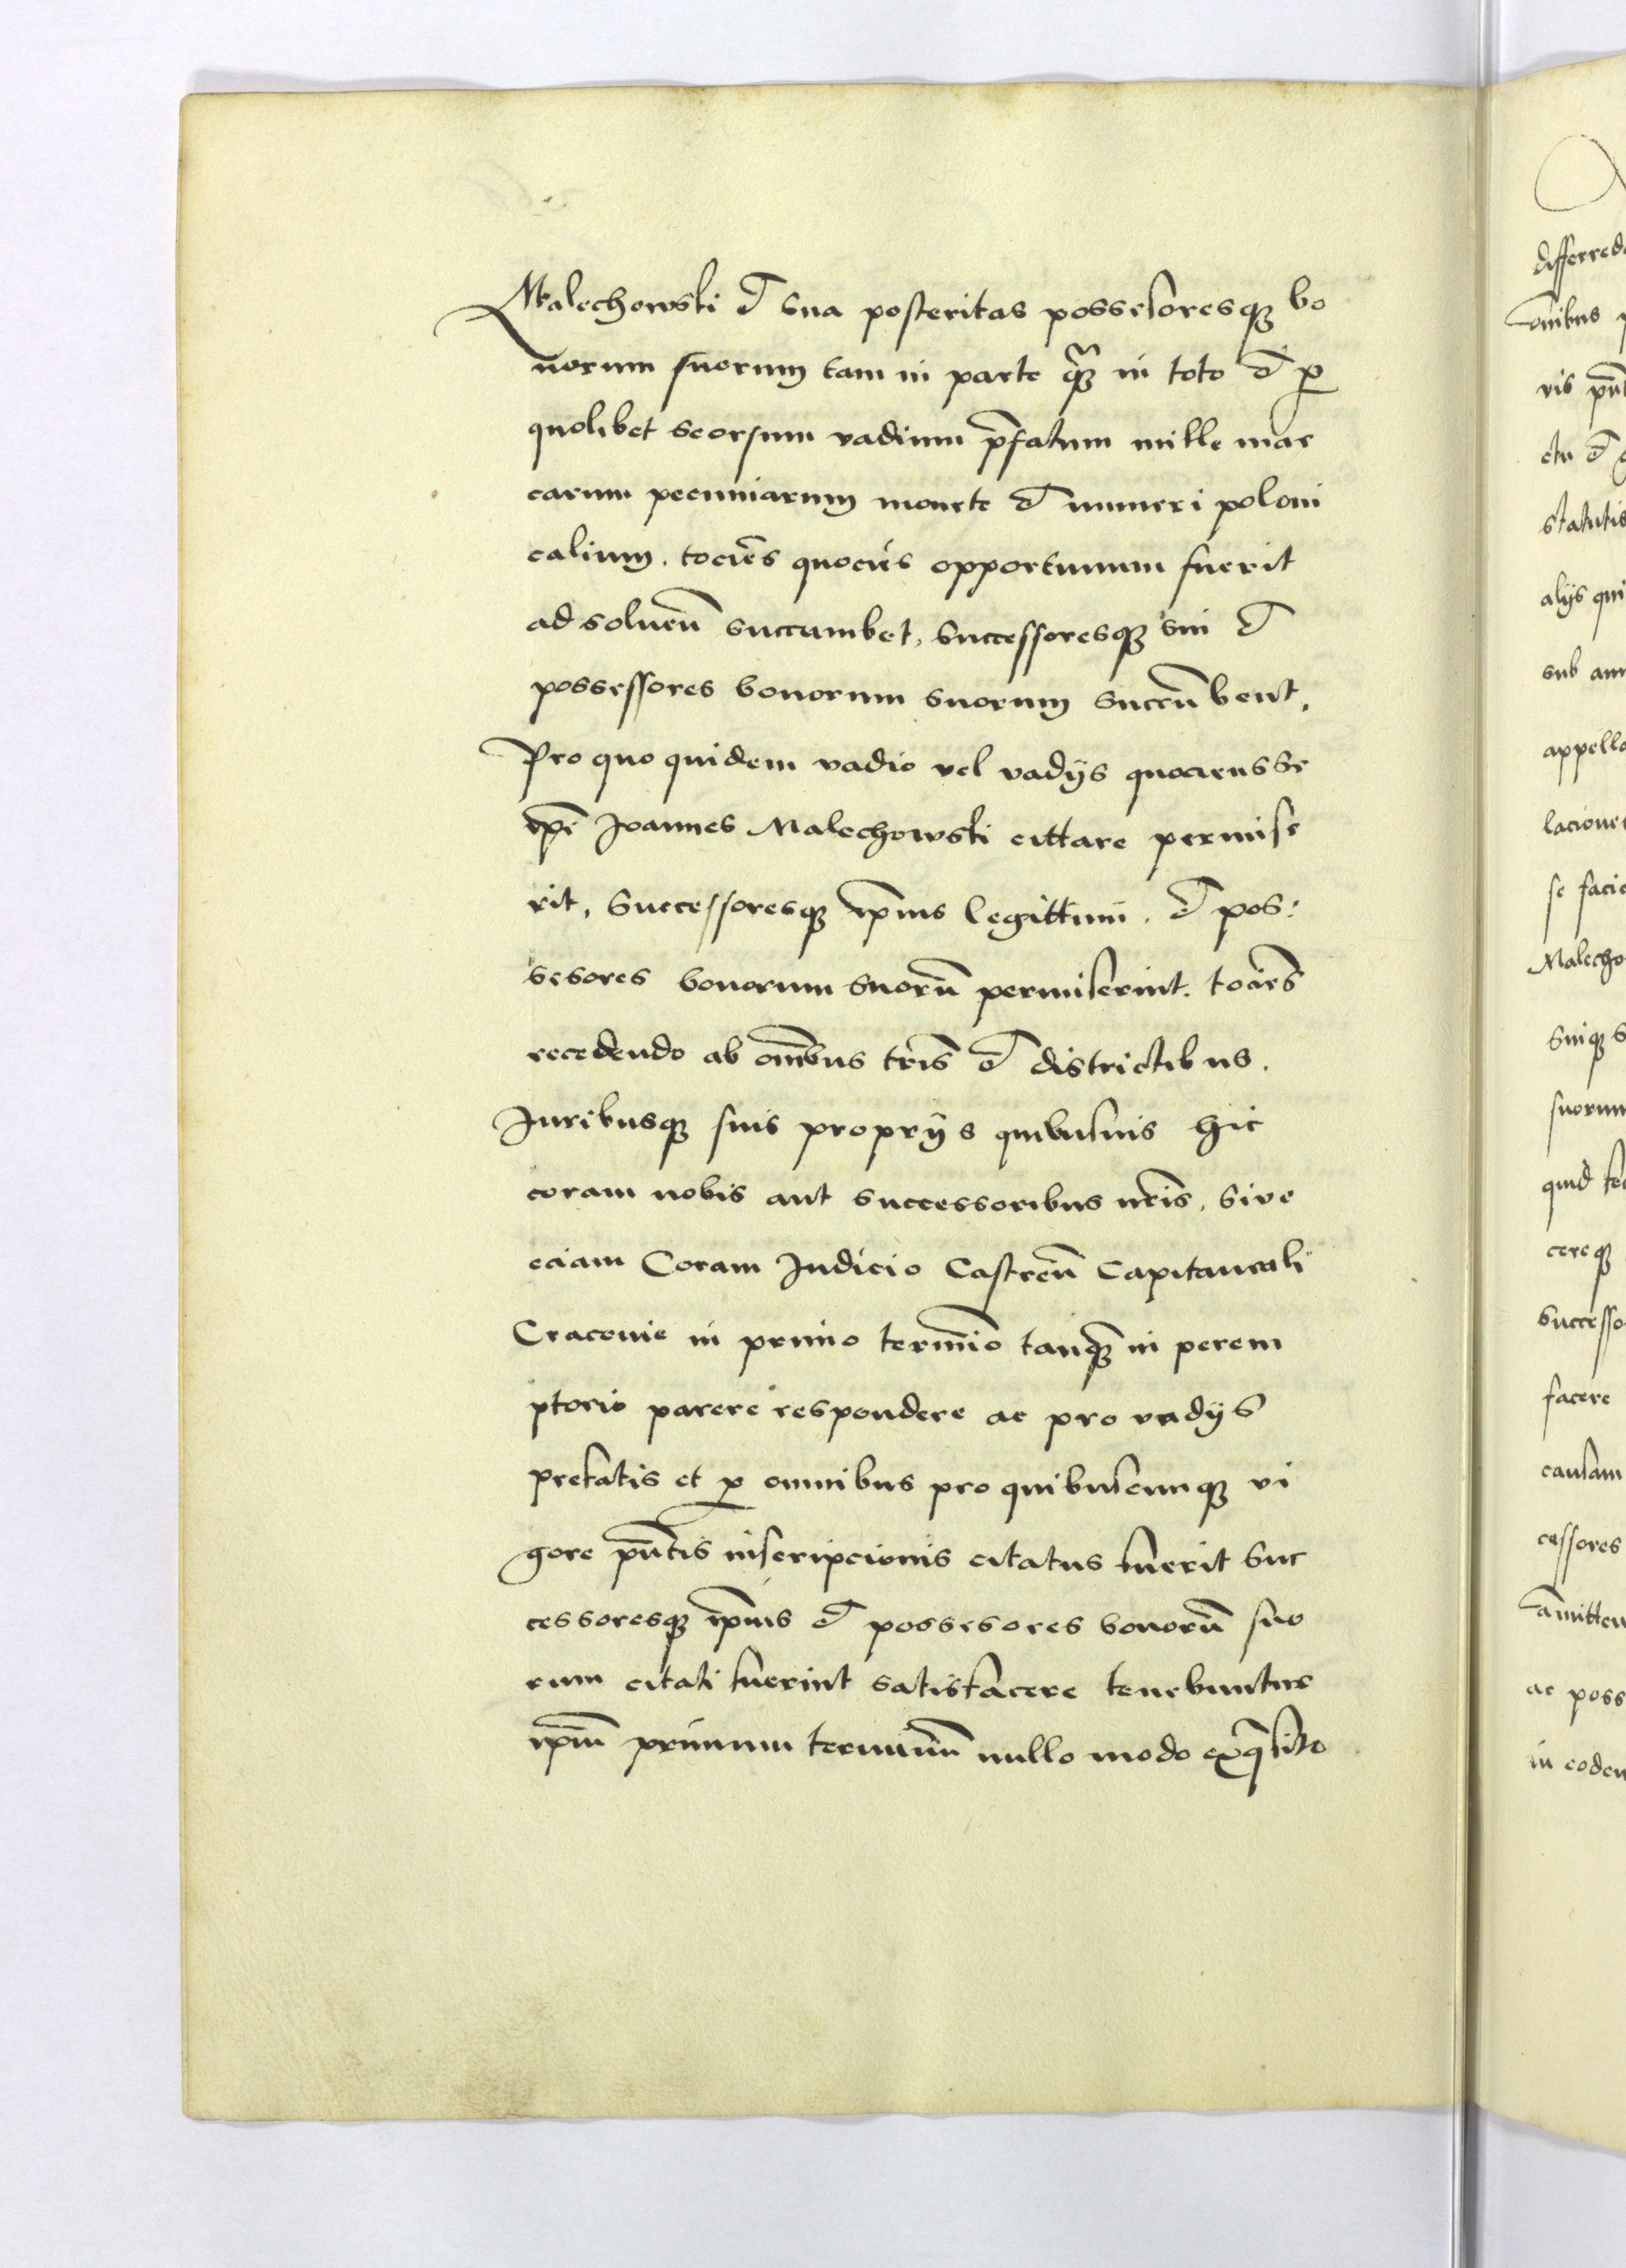 Malechowski et sua posteritas possesoresq₃ bo
norum suorum tam in parte q̃₃ in toto et p
quolibet seorsum vadium p̄fatum mille mar
carum pecuniarum monete et numeri poloni
calium. tociēs quociēs opportunum fuerit
ad soluen̄ succumbet, successoresq₃ sui et
possessores bonorum suorum succūbent,
Pro quo quidem vadio vel vadijs quociens se
ip̄e Joannes Malechowski cittare permise
rit, Successoresq₃ ip̄ius legittimi. et pos:
sesores bonorum suorū permiserint. tociēs
recedendo ab om̄ibus tr̄is et districtibus.
Juribusq₃ suis proprijs quibusuis hic
coram nobis aut successoribus nr̄is, sive
eciam Coram Judicio Castren̄ Capitaneali
Cracovie in primo termīo tanq₃ in perem
ptorio parere respondere ac pro vadijs
prefatis et p omnibus pro quibuscumq₃ vi
gore pn̄tis inscripcionis citatus fuerit suc
cessoresq₃ ip̄ius et possesores bonorū suo
rum citati fuerint satisfacere tenebuntur
ip̄m primum terminū nullo modo exq̄sito
differred
om̄ibus
vis pn̄t
ctu et
statutis
alijs qui
sub ann
appella
lacione
se facie
Malecho
suiq₃ s
suorum
quid te
cereq₃
successo
facere
causam
cessores
amitten
ac poss
in eodem